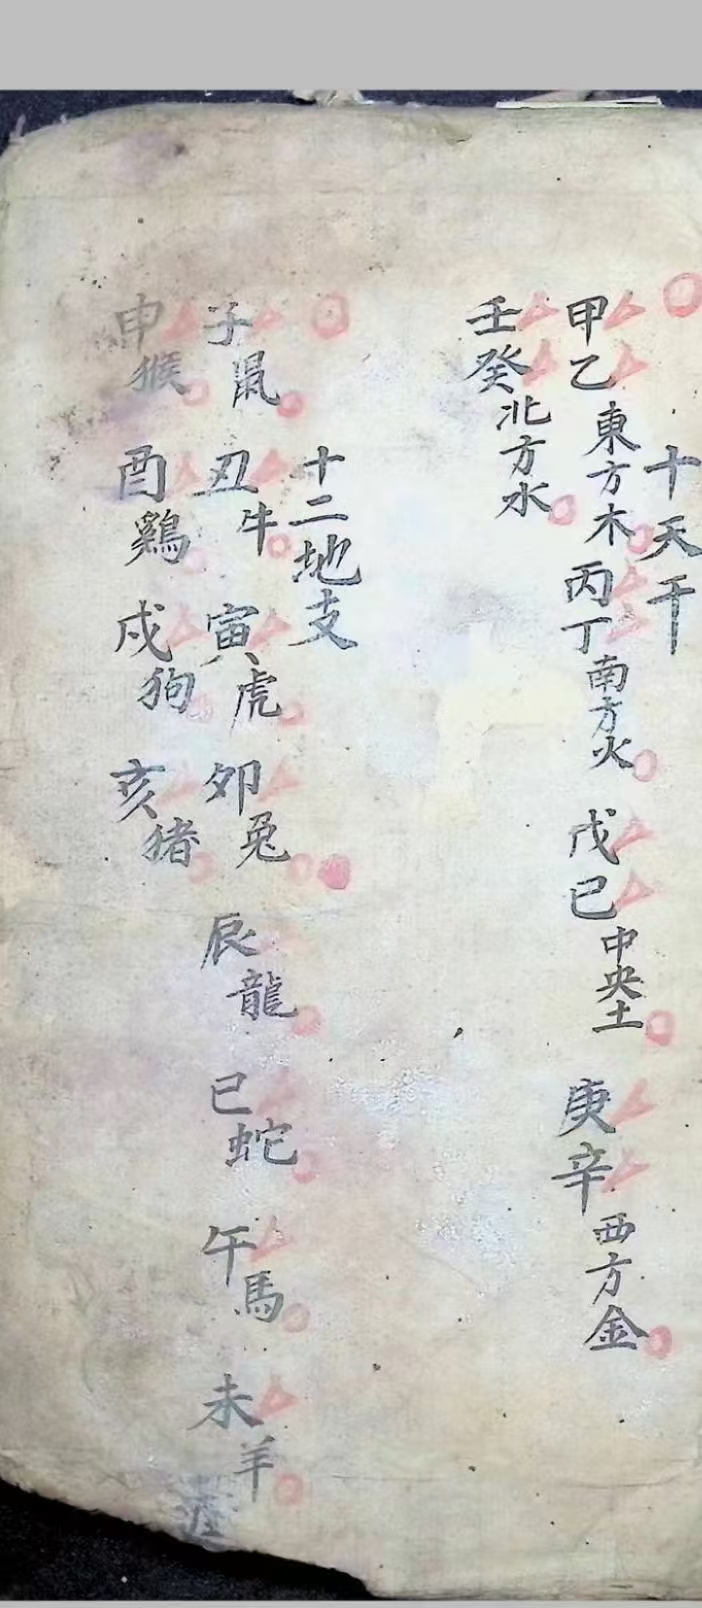 十天干
甲乙東方木丙丁南方火戊已中央土庚辛西方金
壬癸北方水
十二地支
子鼠丑牛寅虎卯兎辰龍巳蛇午馬未羊
申猴酉鷄戍狗亥猪